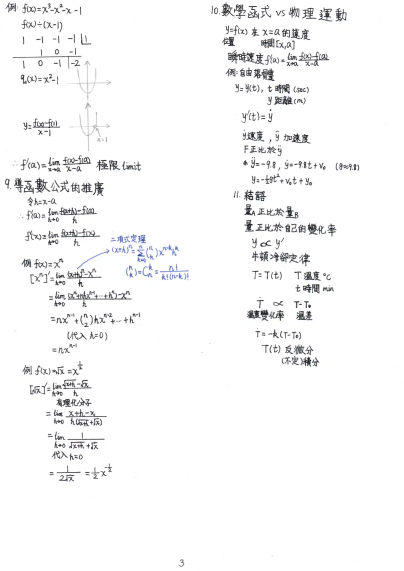 例 f(x)=x³-x²-x-1
f(x)÷(x-1)
1 -1 -1 -1 |1
1 0 -1
1 0 -1 |-2
q₁(x)=x²-1
y=(f(x)-f(1))/(x-1)
x-1
∴ f'(a)=lim_{x→a} (f(x)-f(a))/(x-a) 極限 limit
9. 導函數公式的推廣
令h=x-a
∴ f'(a)=lim_{h→0} (f(a+h)-f(a))/h
f'(x)=lim_{h→0} (f(x+h)-f(x))/h
二項式定理
例 f(x)=xⁿ
[xⁿ]'=lim_{h→0} ((x+h)ⁿ-xⁿ)/h
=nxⁿ⁻¹+(n 2)hxⁿ⁻²+…+hⁿ⁻¹
(代入 h=0)
=nxⁿ⁻¹
例 f(x)=√x = x^{1/2}
[√x]'=lim_{h→0} (√(x+h)-√x)/h
有理化分子
=lim_{h→0} (x+h-x)/(h(√(x+h)+√x))
=lim_{h→0} 1/(√(x+h)+√x)
代入 h=0
=1/(2√x)=½x^{-1/2}
10. 數學函式 vs 物理運動
y=f(x) 在 x=a 的速度
位置 時間[x,a]
瞬時速度 f'(a)=lim_{x→a} (f(x)-f(a))/(x-a)
例: 自由落體
y=y(t), t 時間 (sec)
y 距離(m)
y'(t)=ẏ
ẏ 速度, ÿ 加速度
F正比於ÿ
ÿ=-9.8, ẏ=-9.8t+v₀ (g≈9.8)
y=-½gt²+v₀t+y₀
11. 結語
量A 正比於 量B
量 正比於 自己的變化率
y ∝ y'
牛頓冷卻定律
T=T(t) T 溫度 °C
t 時間 min
Ṫ ∝ T-T₀
溫度變化率 溫差
Ṫ=-k(T-T₀)
T(t) 反微分
(不定)積分
3